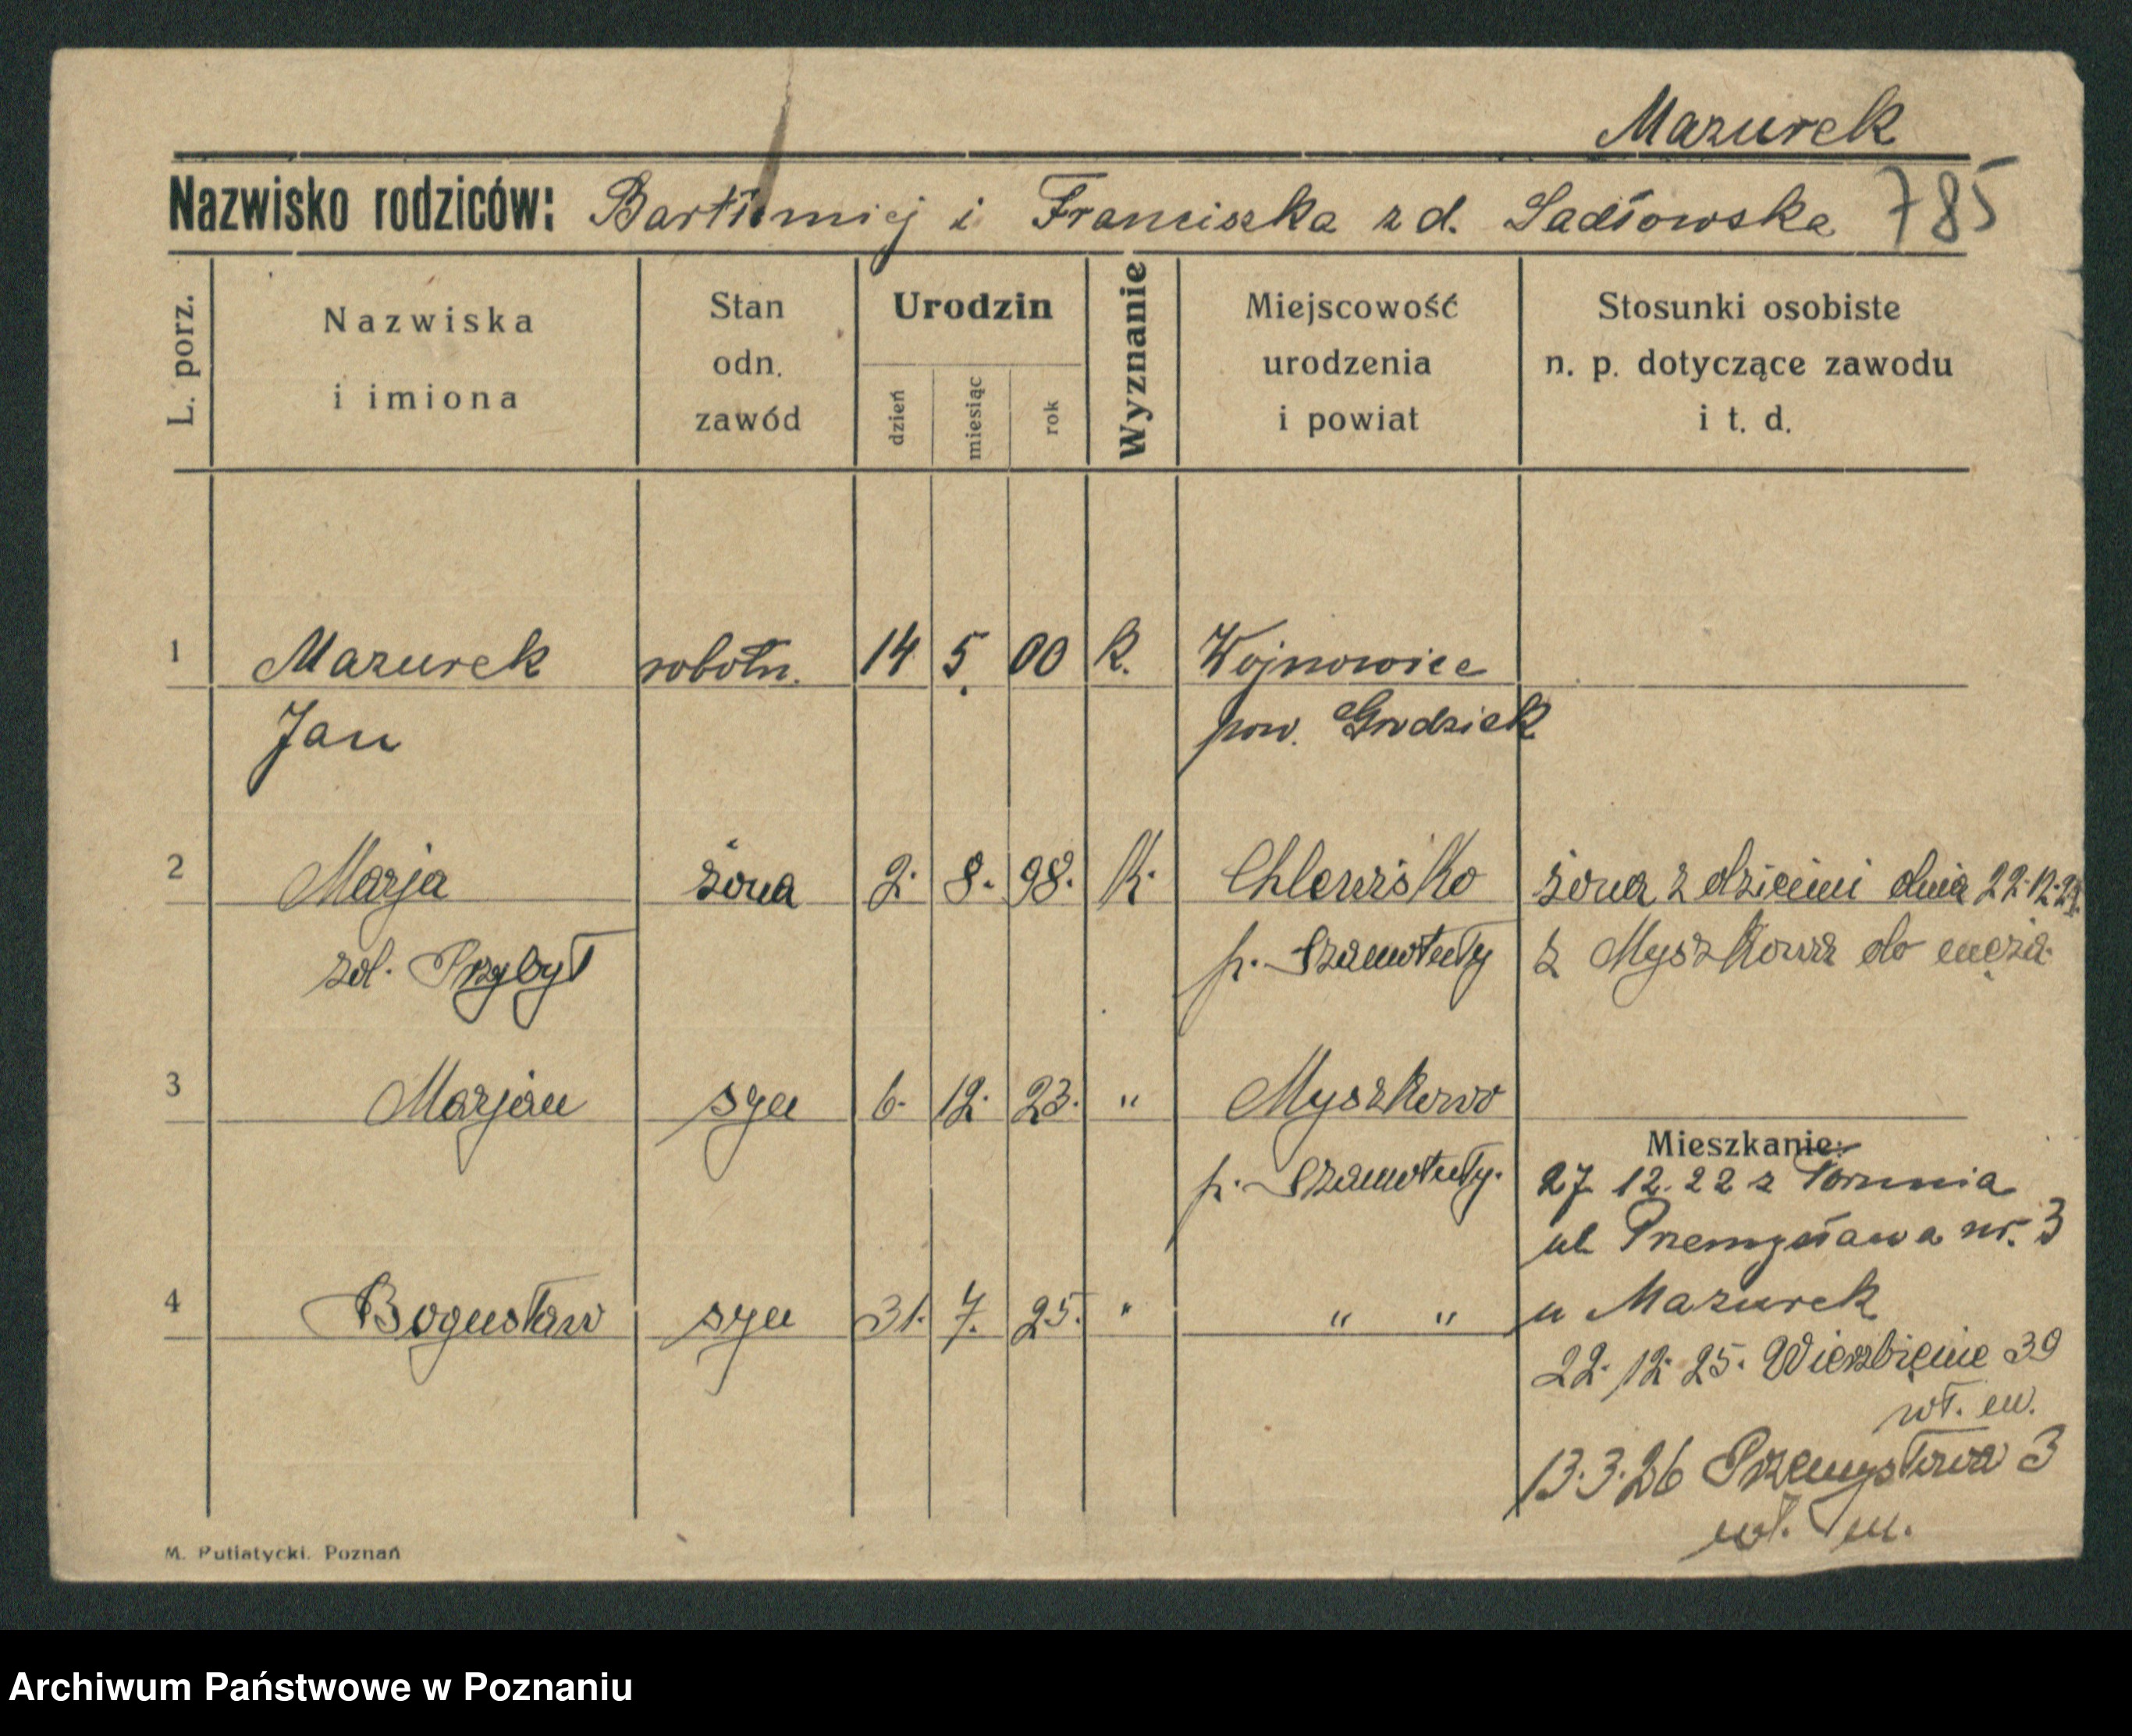 Mazurek
Nazwisko rodziców: Bartłomiej i Franciszka z d. Sadłowska 785
L. porz. Nazwiska i imiona Stan odn. zawód Urodzin dzień miesiąc rok Wyznanie Miejscowość urodzenia i powiat Stosunki osobiste n. p. dotyczące zawodu i t. d.
1 Mazurek robotn. 14 5 00 k. Wojnowice
Jan pow. Grodzisk
2 Marja żona 2. 8. 98. K. Chlewisko żona z dziećmi dnia 22.12.25.
zd. Przybył p. Szamotuły z Myszkowa do męża.
3 Marjan syn 6. 12. 23. " Myszkowo
Mieszkanie:
p. Szamotuły. 27 12. 22 z Torunia
ul Przemysława nr. 3
4 Bogusław syn 31. 7. 25. " " " u Mazurek
22. 12. 25. Wierzbięcice 39
wł. m.
13.3.26 Przemysława 3
wł. m.
M. Putiatycki. Poznań
Archiwum Państwowe w Poznaniu